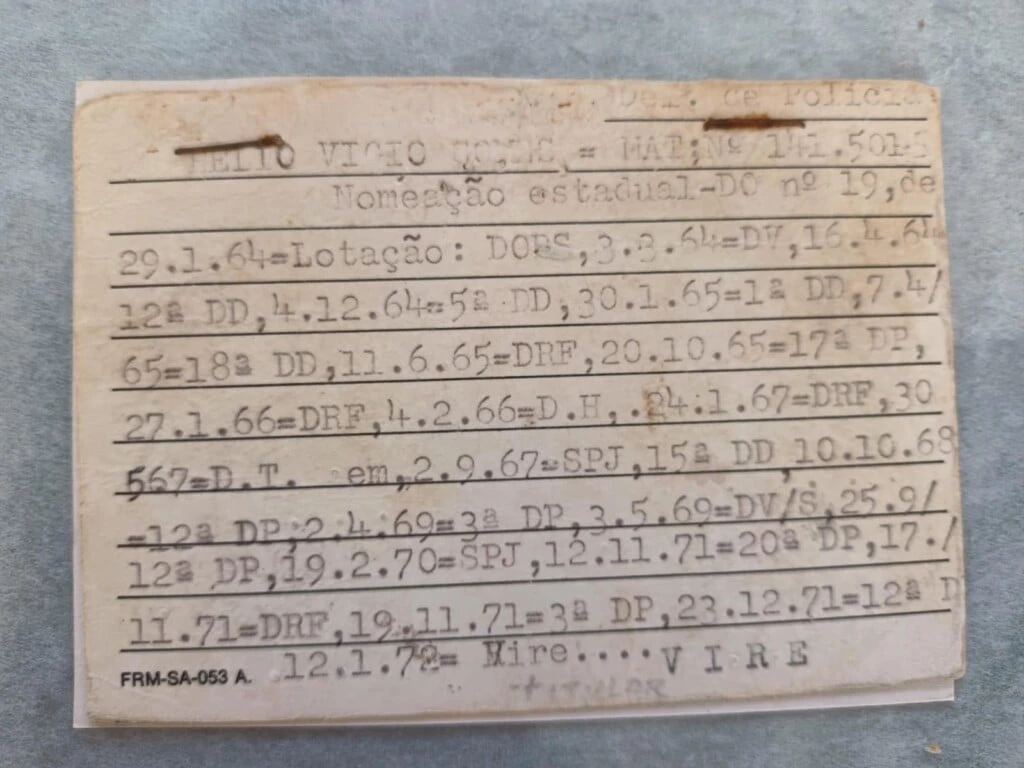 Del. de Polícia
VICIO = MAT;Nº 141.501-5
Nomeação estadual-DO nº 19,de
29.1.64=Lotação: DOPS,3.3.64=DV,16.4.64
12ª DD,4.12.64=5ª DD,30.1.65=1ª DD,7.4/
65=18ª DD,11.6.65=DRF,20.10.65=17ª DP,
27.1.66=DRF,4.2.66=D.H,.24.1.67=DRF,30
567=D.T. em,2.9.67=SPJ,15ª DD,10.10.68
=12ª DP;2.4.69=3ª DP,3.5.69=DV/S,25.9/
12ª DP,19.2.70=SPJ,12.11.71=20ª DP,17./
11.71=DRF,19.11.71=3ª DP,23.12.71=12ª D
12.1.72= Mire....V I R E
FRM-SA-053 A.
TITULAR